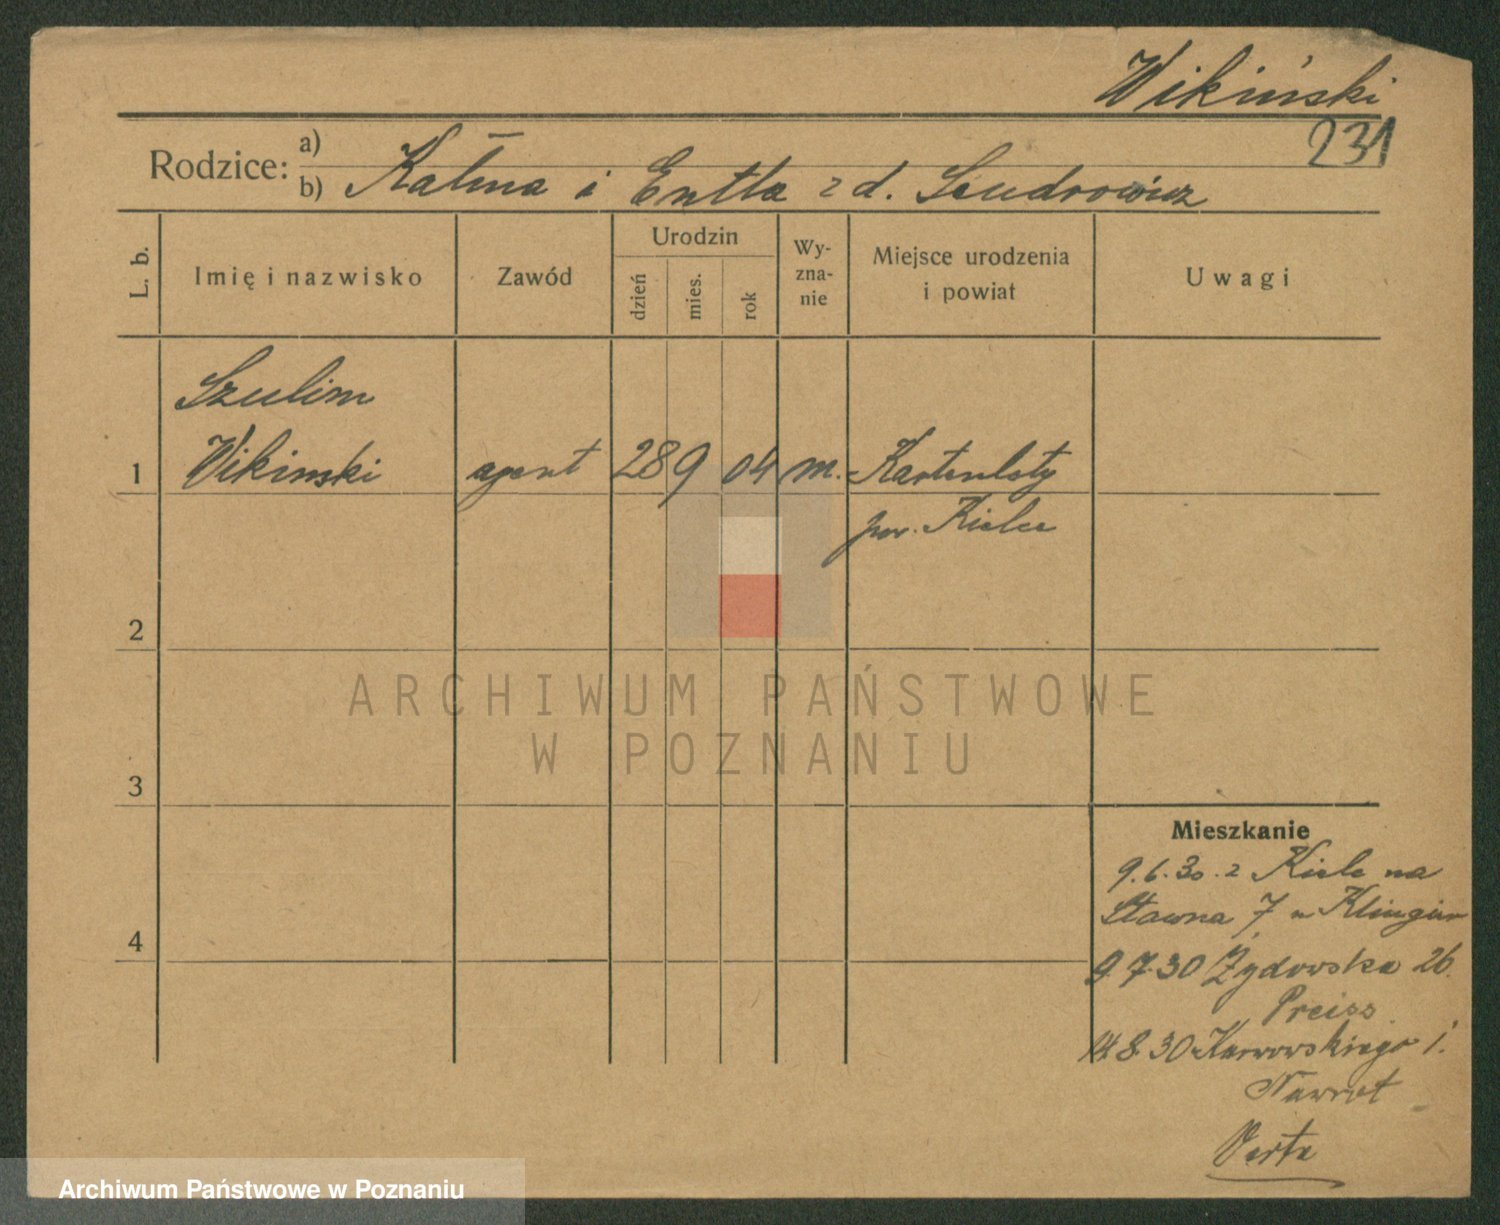 Wikiński
231
Rodzice: a)
b) Kalma i Entla z d. Szudrowicz
L. b.
Imię i nazwisko
Zawód
Urodzin
dzień
mies.
rok
Wy-
zna-
nie
Miejsce urodzenia
i powiat
Uwagi
Szulim
1 Wikinski agent 28 9 04 m.
pow. Kielce
2
ARCHIWUM PAŃSTWOWE
W POZNANIU
3
Mieszkanie
9.6.30. z Kielc na
4 Stawna 7 u
9.7.30 Żydowska 26.
Preiss
14.8.30 Karwowskiego 1.
Nawrot
Verte
Archiwum Państwowe w Poznaniu